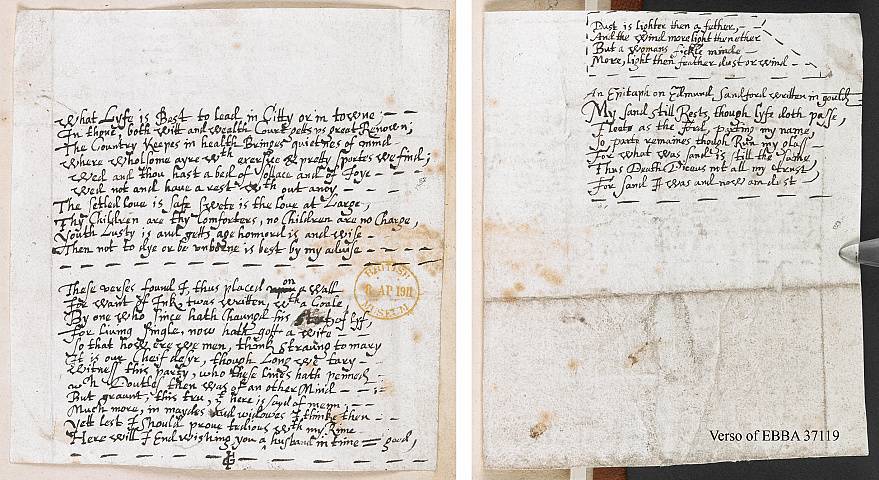 What Lyfe is Best to lead in Citty or in towne;
In thone, both witt and wealth Court getts vs great Renown;
The Country Keepes in health Bringes quietnes of mind
Where wholsome ayre wth exercise & pretty sportes we find;
Wed and thou hast a bed of sollace and of Joye
Wed not and have a rest wth out anoy
The setled love is safe swete is the love at Large,
Thy Children are thy Comforters, no Children are no Charge,
Youth Lusty is and gay, age honord is and wise
Then not to dye or be unborne is best by my aduise
These verses found I, thus placed on a wall
For want of Ink, twas written, wth a Coale,
By one who since hath Chaungd his of Lyf,
For living single, now hath gott a wife
So that how ere we men, think straung to mary
It is our Cheif desyr, though Long we tary
Witness this party, who these lines hath penned
wch Doutles then was of an other Mind
But graunt, this tru, yt here is sayd of menn,
Much more, in maydes and widowes I thinke then
Yett lest I should prove tedious wth my Rime
Here will I End wishing you a husband in time good,
BRITISH
8 AP 1911
MUSEUM
Dust is lighter then a fether,
And the wind more light then ether
But a womans fickle minde
More, light then feather dust or wind
An Epitaph on Edmund Sandford written in gould
My sand still Rests, though lyfe doth passe,
Fleets as the ford, parting my name,
So parte remaines though Run my glass
For what was sand is still the same,
Thus Death Diceus not all my trust,
For sand I was and now am dust
Verso of EBBA 37119